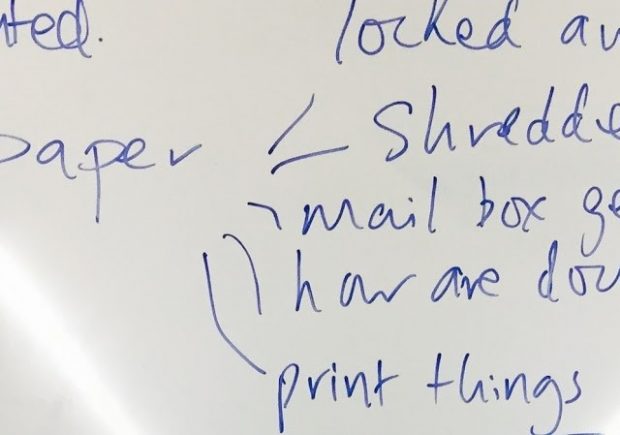 nted. locked aw
paper < shredde
mail box ge
how are dou
print things